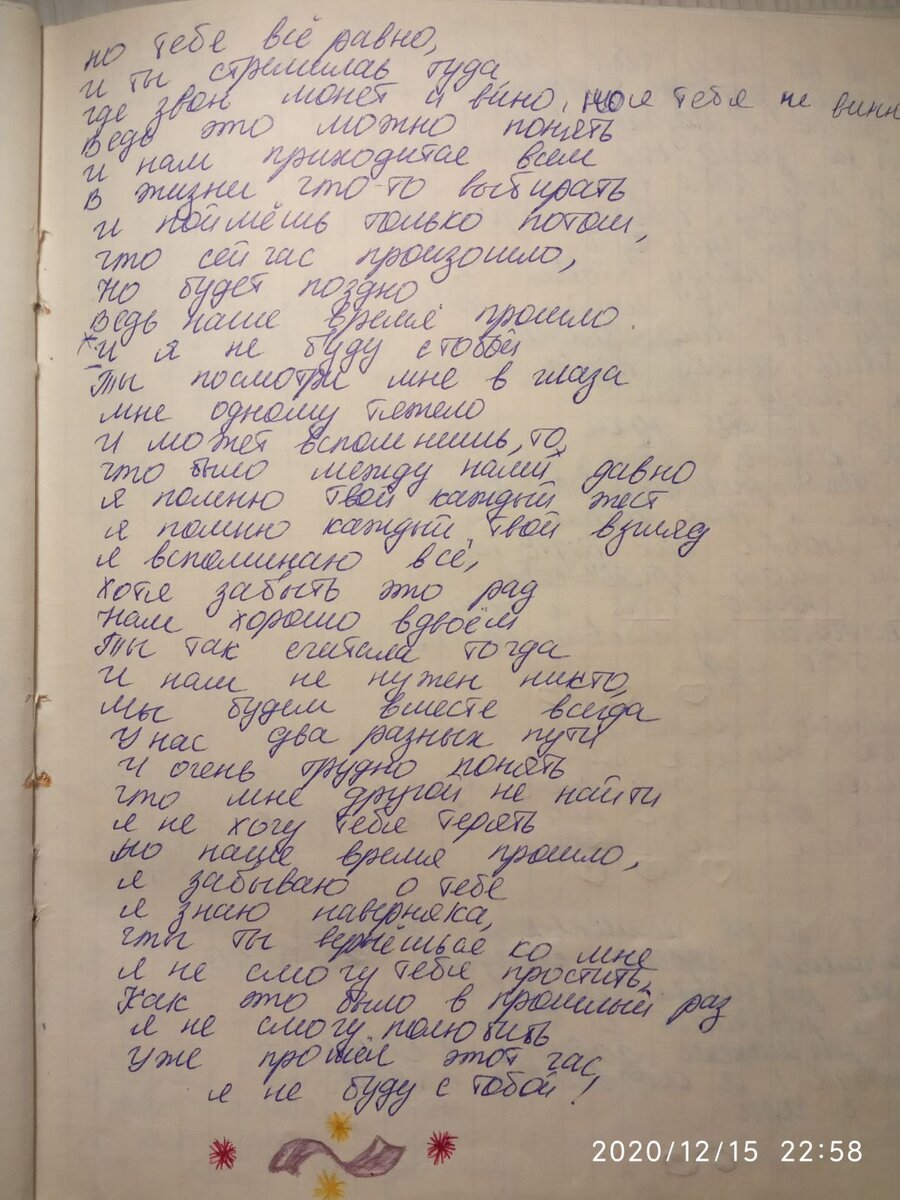 но тебе всё равно,
и ты стремилась туда
где звон монет и вино, но я тебя не виню
Ведь это можно понять
и нам приходится всем
в жизни что-то выбирать
и поймёшь только потом,
что сейчас произошло,
но будет поздно
ведь наше время прошло.
И я не буду с тобой
Ты посмотри мне в глаза
мне одному тяжело
И может вспомнишь, то,
что было между нами давно
я помню твой каждый жест
я помню каждый твой взгляд
я вспоминаю всё,
хотя забыть это рад
нам хорошо вдвоём
Ты так считала тогда
И нам не нужен никто,
мы будем вместе всегда
У нас два разных пути
И очень трудно понять
что мне другой не найти
я не хочу тебя терять
но наше время прошло,
я забываю о тебе
я знаю наверняка,
что ты вернёшься ко мне
я не смогу тебя простить,
Как это было в прошлый раз
я не смогу полюбить
уже прошёл этот час
я не буду с тобой!
2020/12/15 22:58